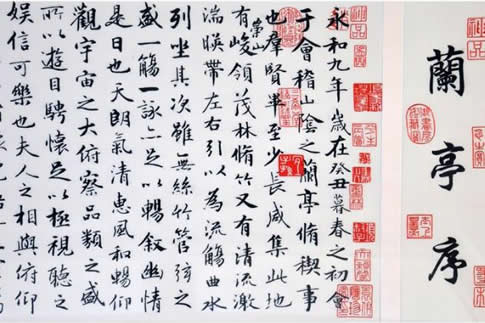 蘭亭序
永和九年歲在癸丑暮春之初會
于會稽山陰之蘭亭脩稧事
也羣賢畢至少長咸集此地
崇山
有峻領茂林脩竹又有清流激
湍暎帶左右引以為流觴曲水
列坐其次雖無絲竹管弦之
盛一觴一詠亦足以暢叙幽情
是日也天朗氣清惠風和暢仰
觀宇宙之大俯察品類之盛
所以遊目騁懷足以極視聽之
娛信可樂也夫人之相與俯仰